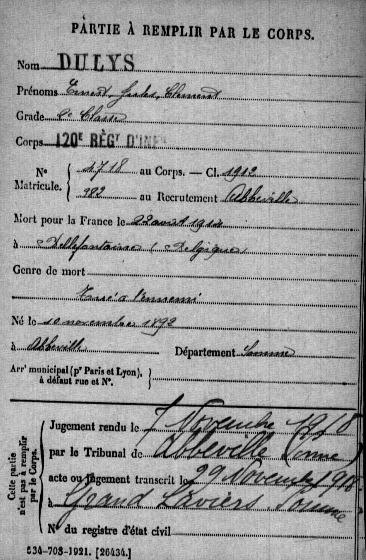 PARTIE À REMPLIR PAR LE CORPS.
Nom DULYS
Prénoms Ernest, Jules, Clément
Grade 2e Classe
Corps 120E RÉGT D'INF
No Matricule. 4718 au Corps. — Cl. 1912
982 au Recrutement Abbeville
Mort pour la France le 22 août 1914
à Bellefontaine (Belgique)
Genre de mort
Tué à l'ennemi
Né le 10 novembre 1892
à Abbeville Département Somme
Arrt municipal (pr Paris et Lyon),
à défaut rue et No.
Cette partie n'est pas à remplir par le Corps.
Jugement rendu le 7 Novembre 1918
par le Tribunal de Abbeville (Somme)
acte ou jugement transcrit le 29 Novembre 1918
à Grand Laviers Somme
No du registre d'état civil
534-708-1921. [26434.]